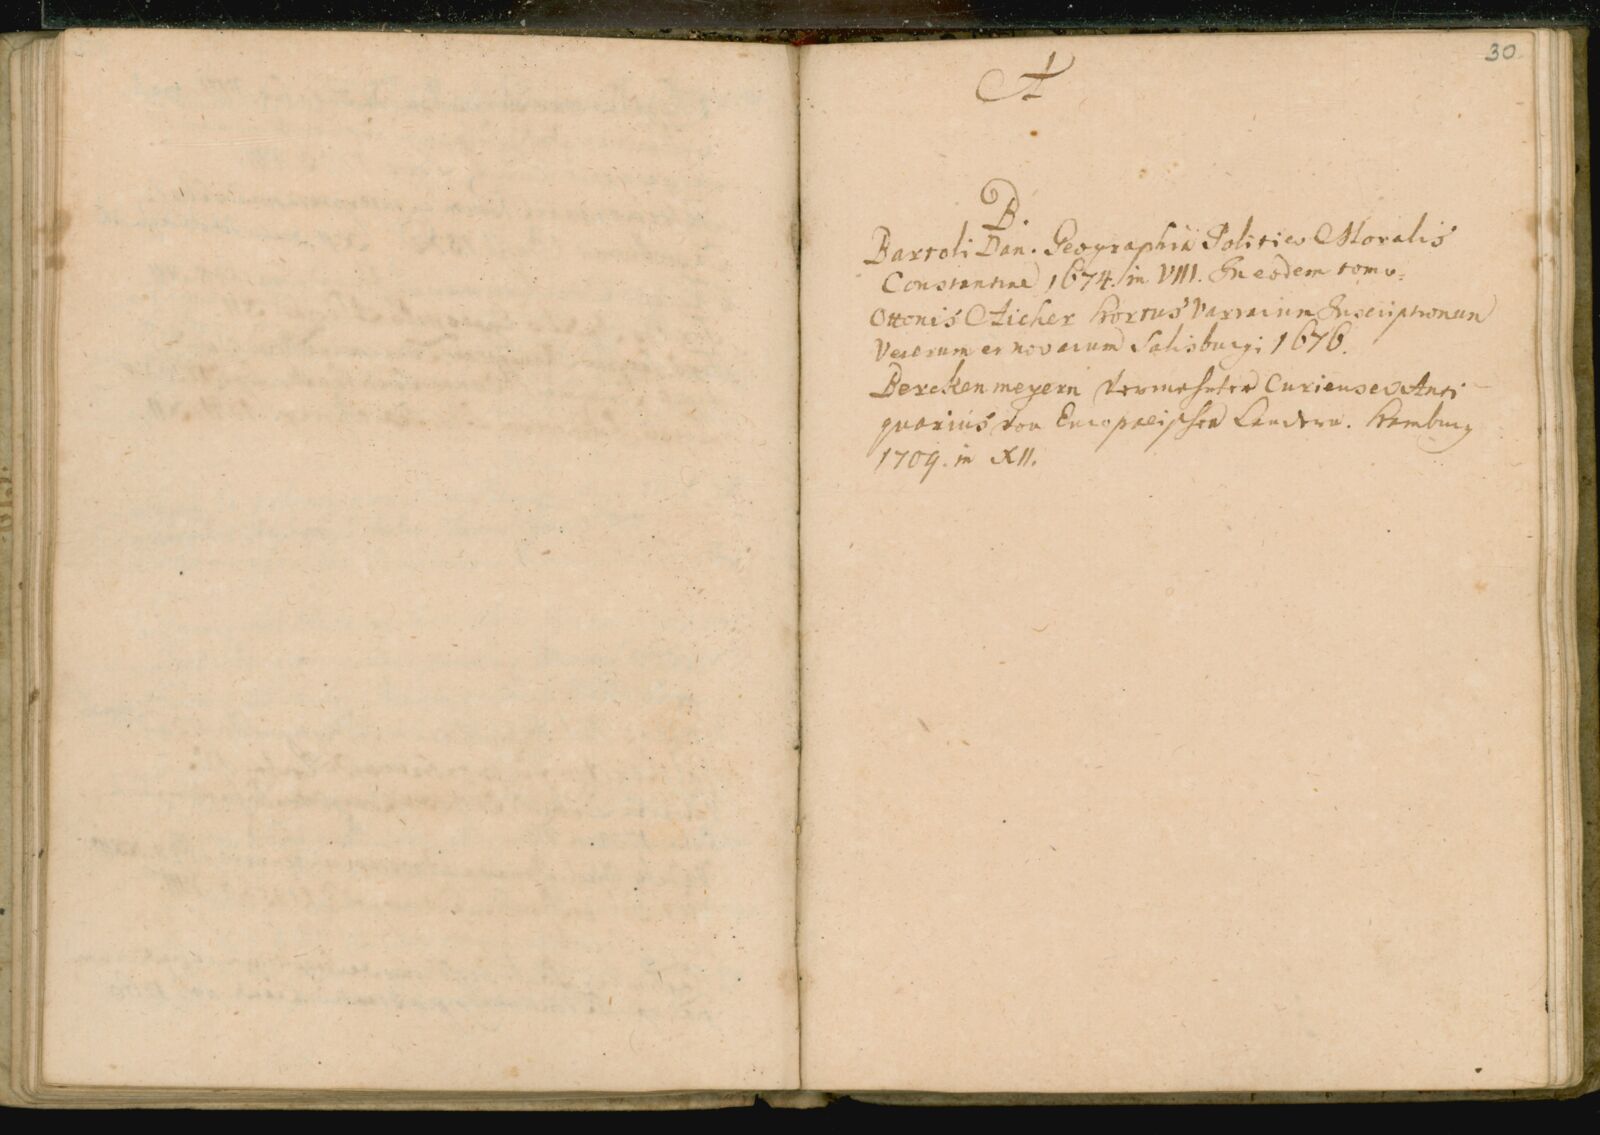 30
A
B.
Bartoli Dan. Geographia Politico Moralis
Constantiae 1674. in VIII. In eodem tomo:
Ottonis Aicher Hortus Variarum Inscriptionum
Veterum et novarum Salisburgi 1676.
Berckenmeyern Vermehrter Curieuser Anti
quarius von Europaeischen Landern. Hamburg
1709. in XII.